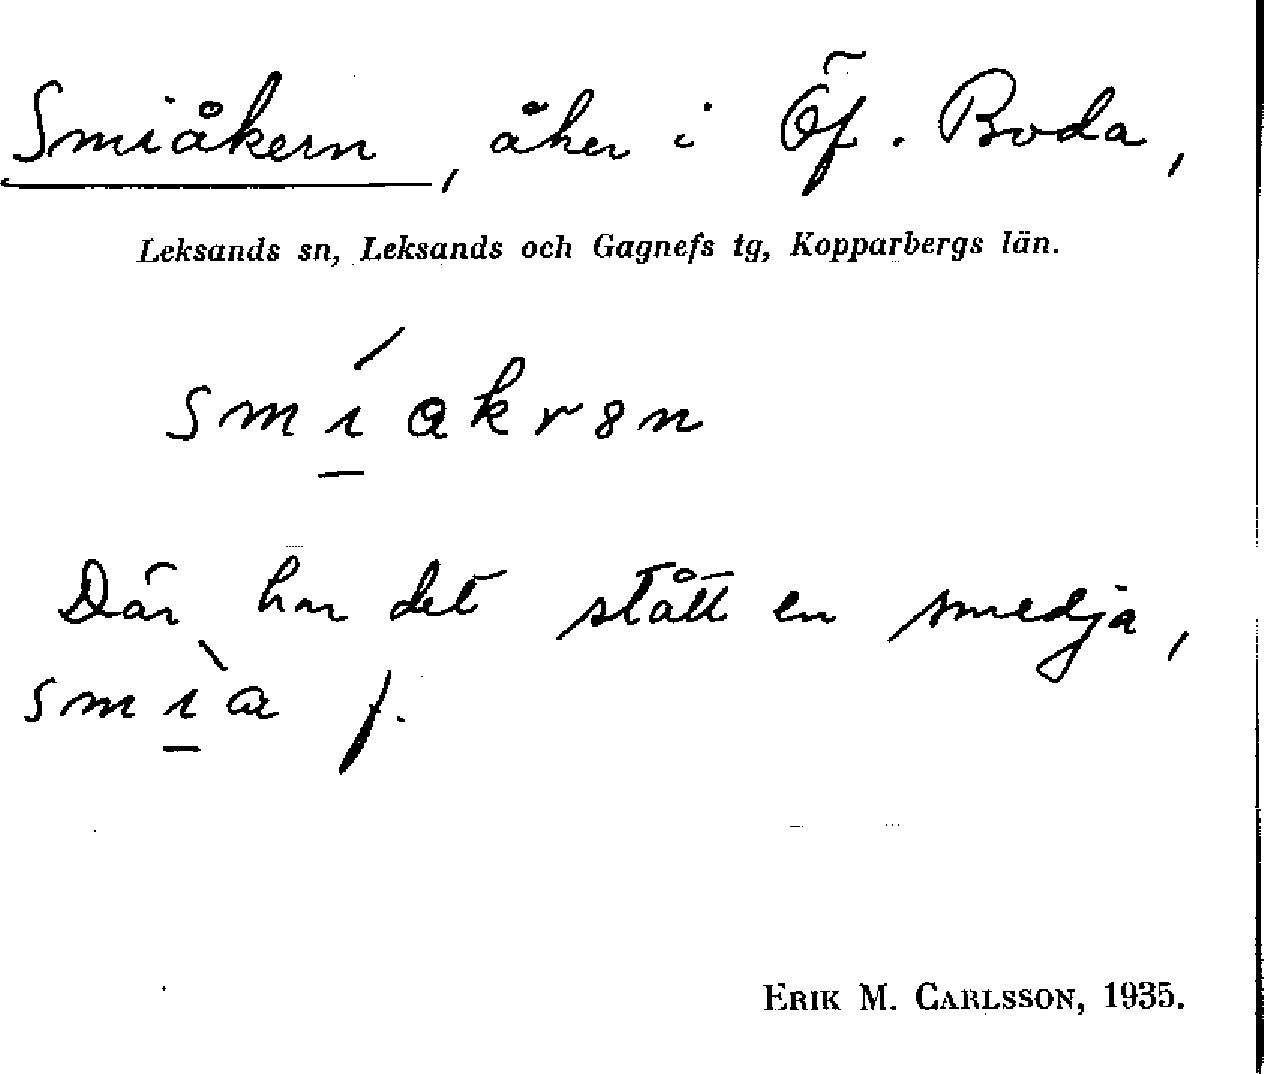 Smiåkern, åker i Öf. Boda,
Leksands sn, Leksands och Gagnefs tg, Kopparbergs län.
smí̱akrən
Där har det stått en smedja,
smì̱a f.
ERIK M. CARLSSON, 1935.